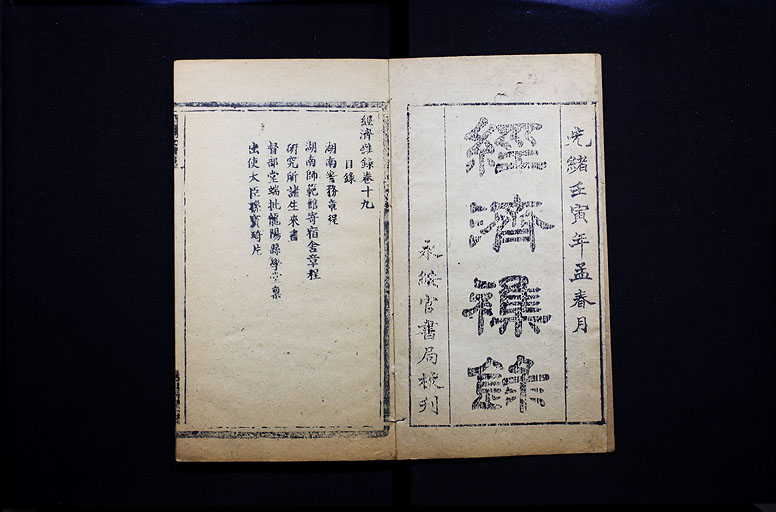 光緒壬寅年孟春月
經濟襍録
永綏官書局校刊
經濟雜録卷十九
目録
湖南警務章程
湖南師範館寄宿舍章程
研究所諸生來書
督部堂端批龍陽縣學堂稟
出使大臣孫寳琦片